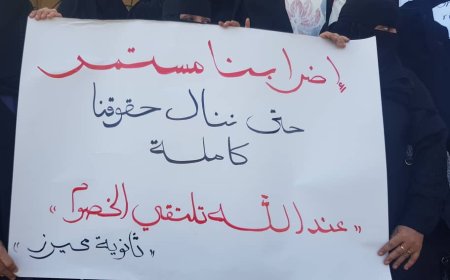 إضرابنا مستمر
حتى ننال حقوقنا
كاملة
"عند الله تلتقي الخصوم"
"ثانوية محيرز"